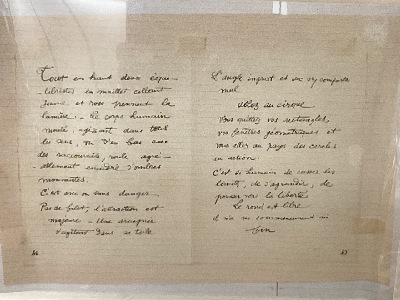 Tout en haut deux équi-
-libristes en maillot collant
jaune et rose prennent la
lumière : le corps humain
moulé, agissant dans tous
les sens, vu d'en bas avec
des raccourcis, roule agré-
-ablement encadré d'ombres
mouvantes
C'est avec ou sans danger.
Pas de filet, l'attraction est
majeure - Une araignée
s'agitant dans sa toile
L'angle ingrat et sec s'y comporte
mal
allez au cirque
Vous quittez vos rectangles,
vos fenêtres géométriques et
vous allez au pays des cercles
en action
C'est si humain de casser les
limites, de s'agrandir, de
pousser vers la liberté
Le rond est libre
il n'a ni commencement ni
fin